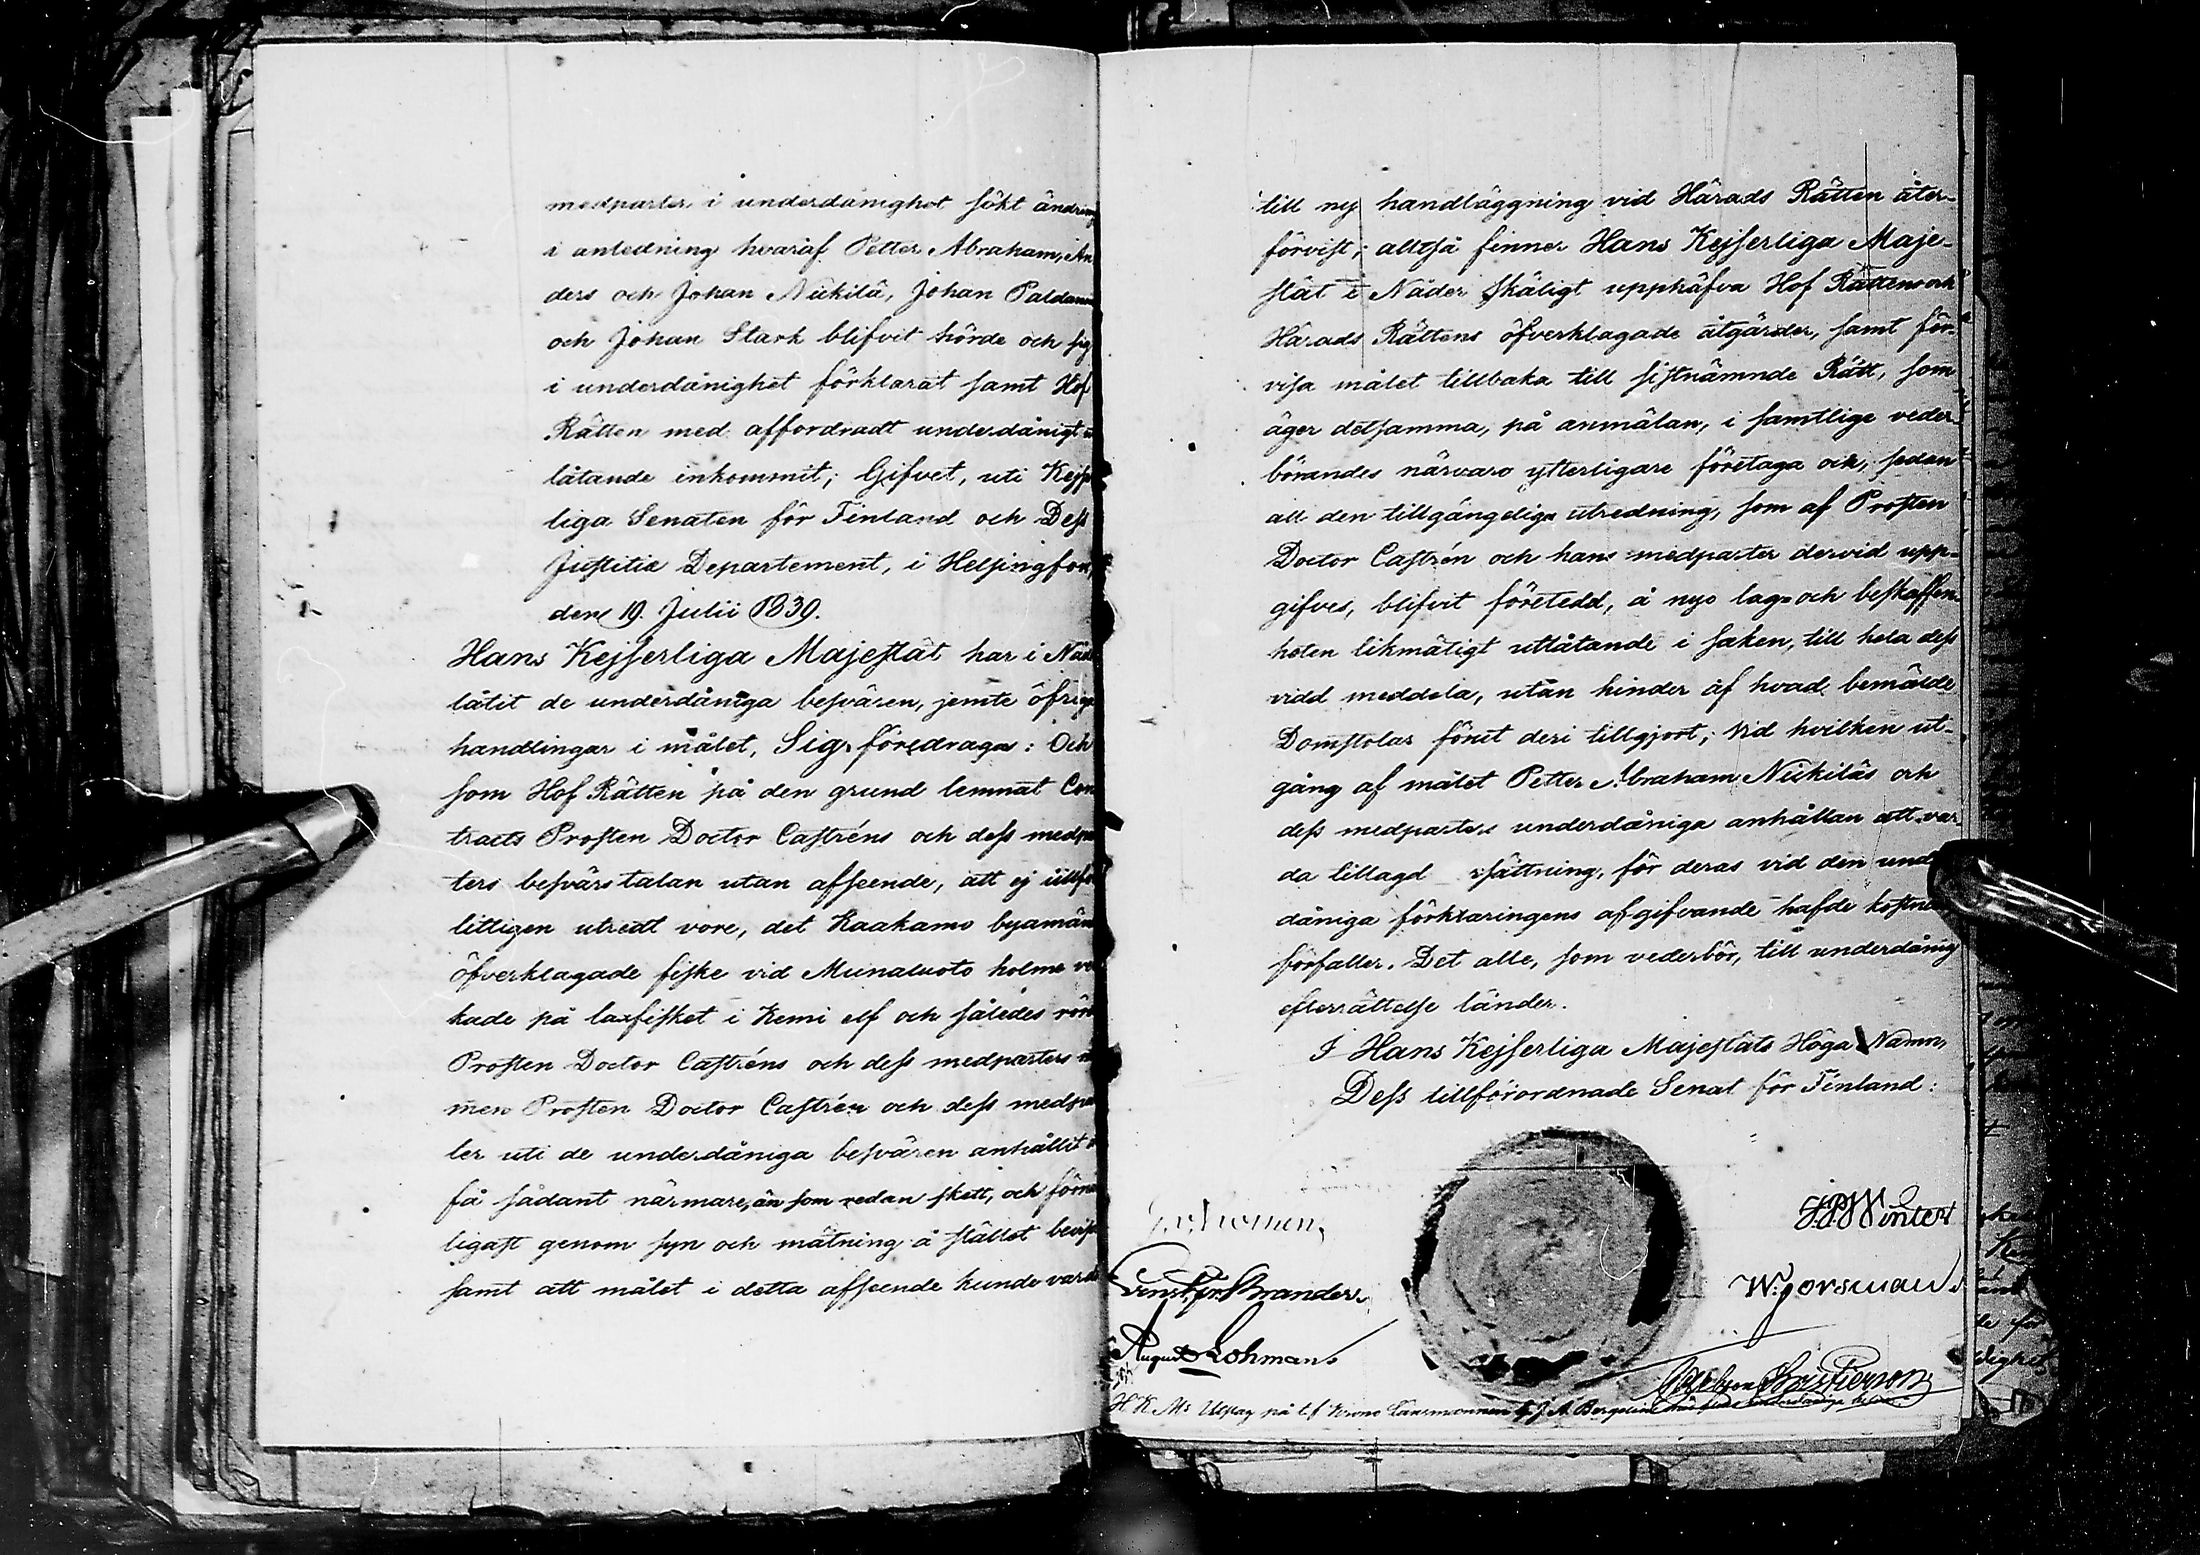 medparter i underdånighet sökt ändring
i anledning hvaraf Petter Abraham, An
ders och Johan Nickilä, Johan Paldani
och Johan Stark blifvit hörde och sig
i underdånighet förklarat samt Hof
Rätten med affordradt underdånigt
låtande inkommit; Gifvet, uti Kejse
liga Senaten för Finland och Dess
Justitiæ Departement, i Helsingfors,
den 19. Julii 1839.
Hans Kejserliga Majestät har i Nåd
låtit de underdåniga besvären, jemte öfrige
handlingar i målet, Sig föredragas: Och
som Hof Rätten på den grund lemnat Con
tracts Prosten Doctor Castréns och dess medpa
ters besvärstalan utan afseende, att ej tillför
litligen utredt vore, det Kaakamo byamäns
öfverklagade fiske vid Munaluoto holme ver
kade på laxfisket i Kemi elf och således rörde
Prosten Doctor Castréns och dess medparters
men Prosten Doctor Castrén och dess medpar
ter uti de underdåniga besvären anhållit
få sådant närmare, än som redan skett, och förne
ligast genom syn och mätning å stället bevis
samt att målet i detta afseende kunde varda
till ny handläggning vid Härads Rätten åter-
förvist; alltså finner Hans Kejserliga Maje-
stät i Nåder skäligt upphäfva Hof Rättens och
Härads Rättens öfverklagade åtgärder, samt för-
visa målet tillbaka till sistnämnde Rätt, som
äger detsamma, på anmälan, i samtlige veder-
börandes närvaro ytterligare företaga och, sedan
all den tillgängeliga utredning, som af Prosten
Doctor Castrén och hans medparter dervid upp-
gifves, blifvit företedd, å nyo lag- och beskaffen-
heten likmätigt utlåtande i saken, till hela dess
vidd meddela, utan hinder af hvad bemälde
Domstolar förut deri tillgjort; Vid hvilken ut-
gång af målet Petter Abraham Nickiläs och
dess medparters underdåniga anhållan att var-
da tillagd sättning, för deras vid den und
dåniga förklaringens afgifvande hafde kostna
förfaller. Det alle, som vederbör, till underdånig
efterrättelse länder.
I Hans Kejserliga Majestäts Höga Namn,
Dess tillförordnade Senat för Finland:
J.P. Winter
Branders
W: Forsman
August Lohman
H. K. Ms Utslag på t.f. Krono Länsmannen J. A. Bergelins underdåniga besvär